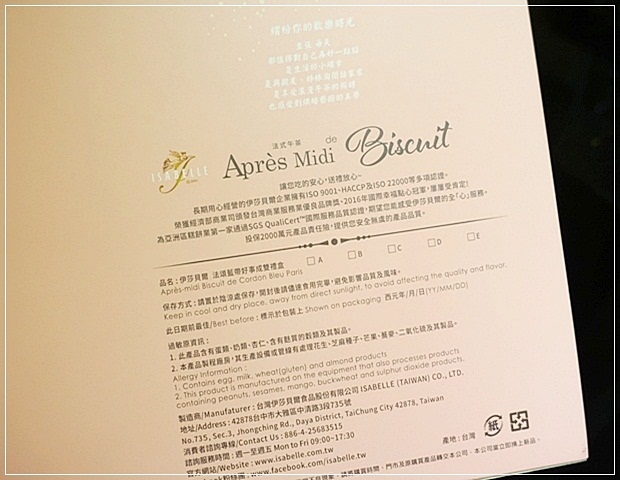 繽紛你的歡樂時光
法式午茶
ISABELLE
Après Midi de Biscuit
讓您吃的安心,送禮放心~
長期用心經營的伊莎貝爾企業擁有ISO 9001、HACCP及ISO 22000等多項認證。
榮獲經濟部商業司頒發台灣商業服務業優良品牌獎、2016年國際幸福點心冠軍,屢屢受肯定!
為亞洲區糕餅業第一家通過SGS QualiCert™國際服務品質認證,期望您能感受伊莎貝爾的全「心」服務。
投保2000萬元產品責任險,提供您安全無慮的產品品質。
品名:伊莎貝爾 法頌藍帶好事成雙禮盒 □A □B □C □D □E
Après-midi Biscuit de Cordon Bleu Paris
保存方式:請置於陰涼處保存,開封後請儘速食用完畢,避免影響品質及風味。
Keep in cool and dry place, away from direct sunlight, to avoid affecting the quality and flavor.
此日期前最佳/Best before:標示於包裝上 Shown on packaging 西元年/月/日(YY/MM/DD)
過敏原資訊:
1. 此產品含有蛋類、奶類、杏仁、含有麩質的穀類及其製品。
2. 本產品製程廠房,其生產設備或管線有處理花生、芝麻種子、芒果、蕎麥、二氧化硫及其製品。
Allergy Information:
1. Contains egg, milk, wheat(gluten) and almond products
2. This product is manufactured on the equipment that also processes products
containing peanuts, sesames, mango, buckwheat and sulphur dioxide products.
製造商/Manufaturer:台灣伊莎貝爾食品股份有限公司 ISABELLE (TAIWAN) CO., LTD.
地址/Address:42878台中市大雅區中清路3段735號
No.735, Sec.3, Jhongching Rd., Daya District, TaiChung City 42878, Taiwan
消費者諮詢專線/Contact Us:886-4-25683515
諮詢服務時間:週一至週五 Mon to Fri 09:00~17:30
官方網站/Website:www.isabelle.com.tw
www.facebook.com/isabelle.tw
產地:台灣
紙